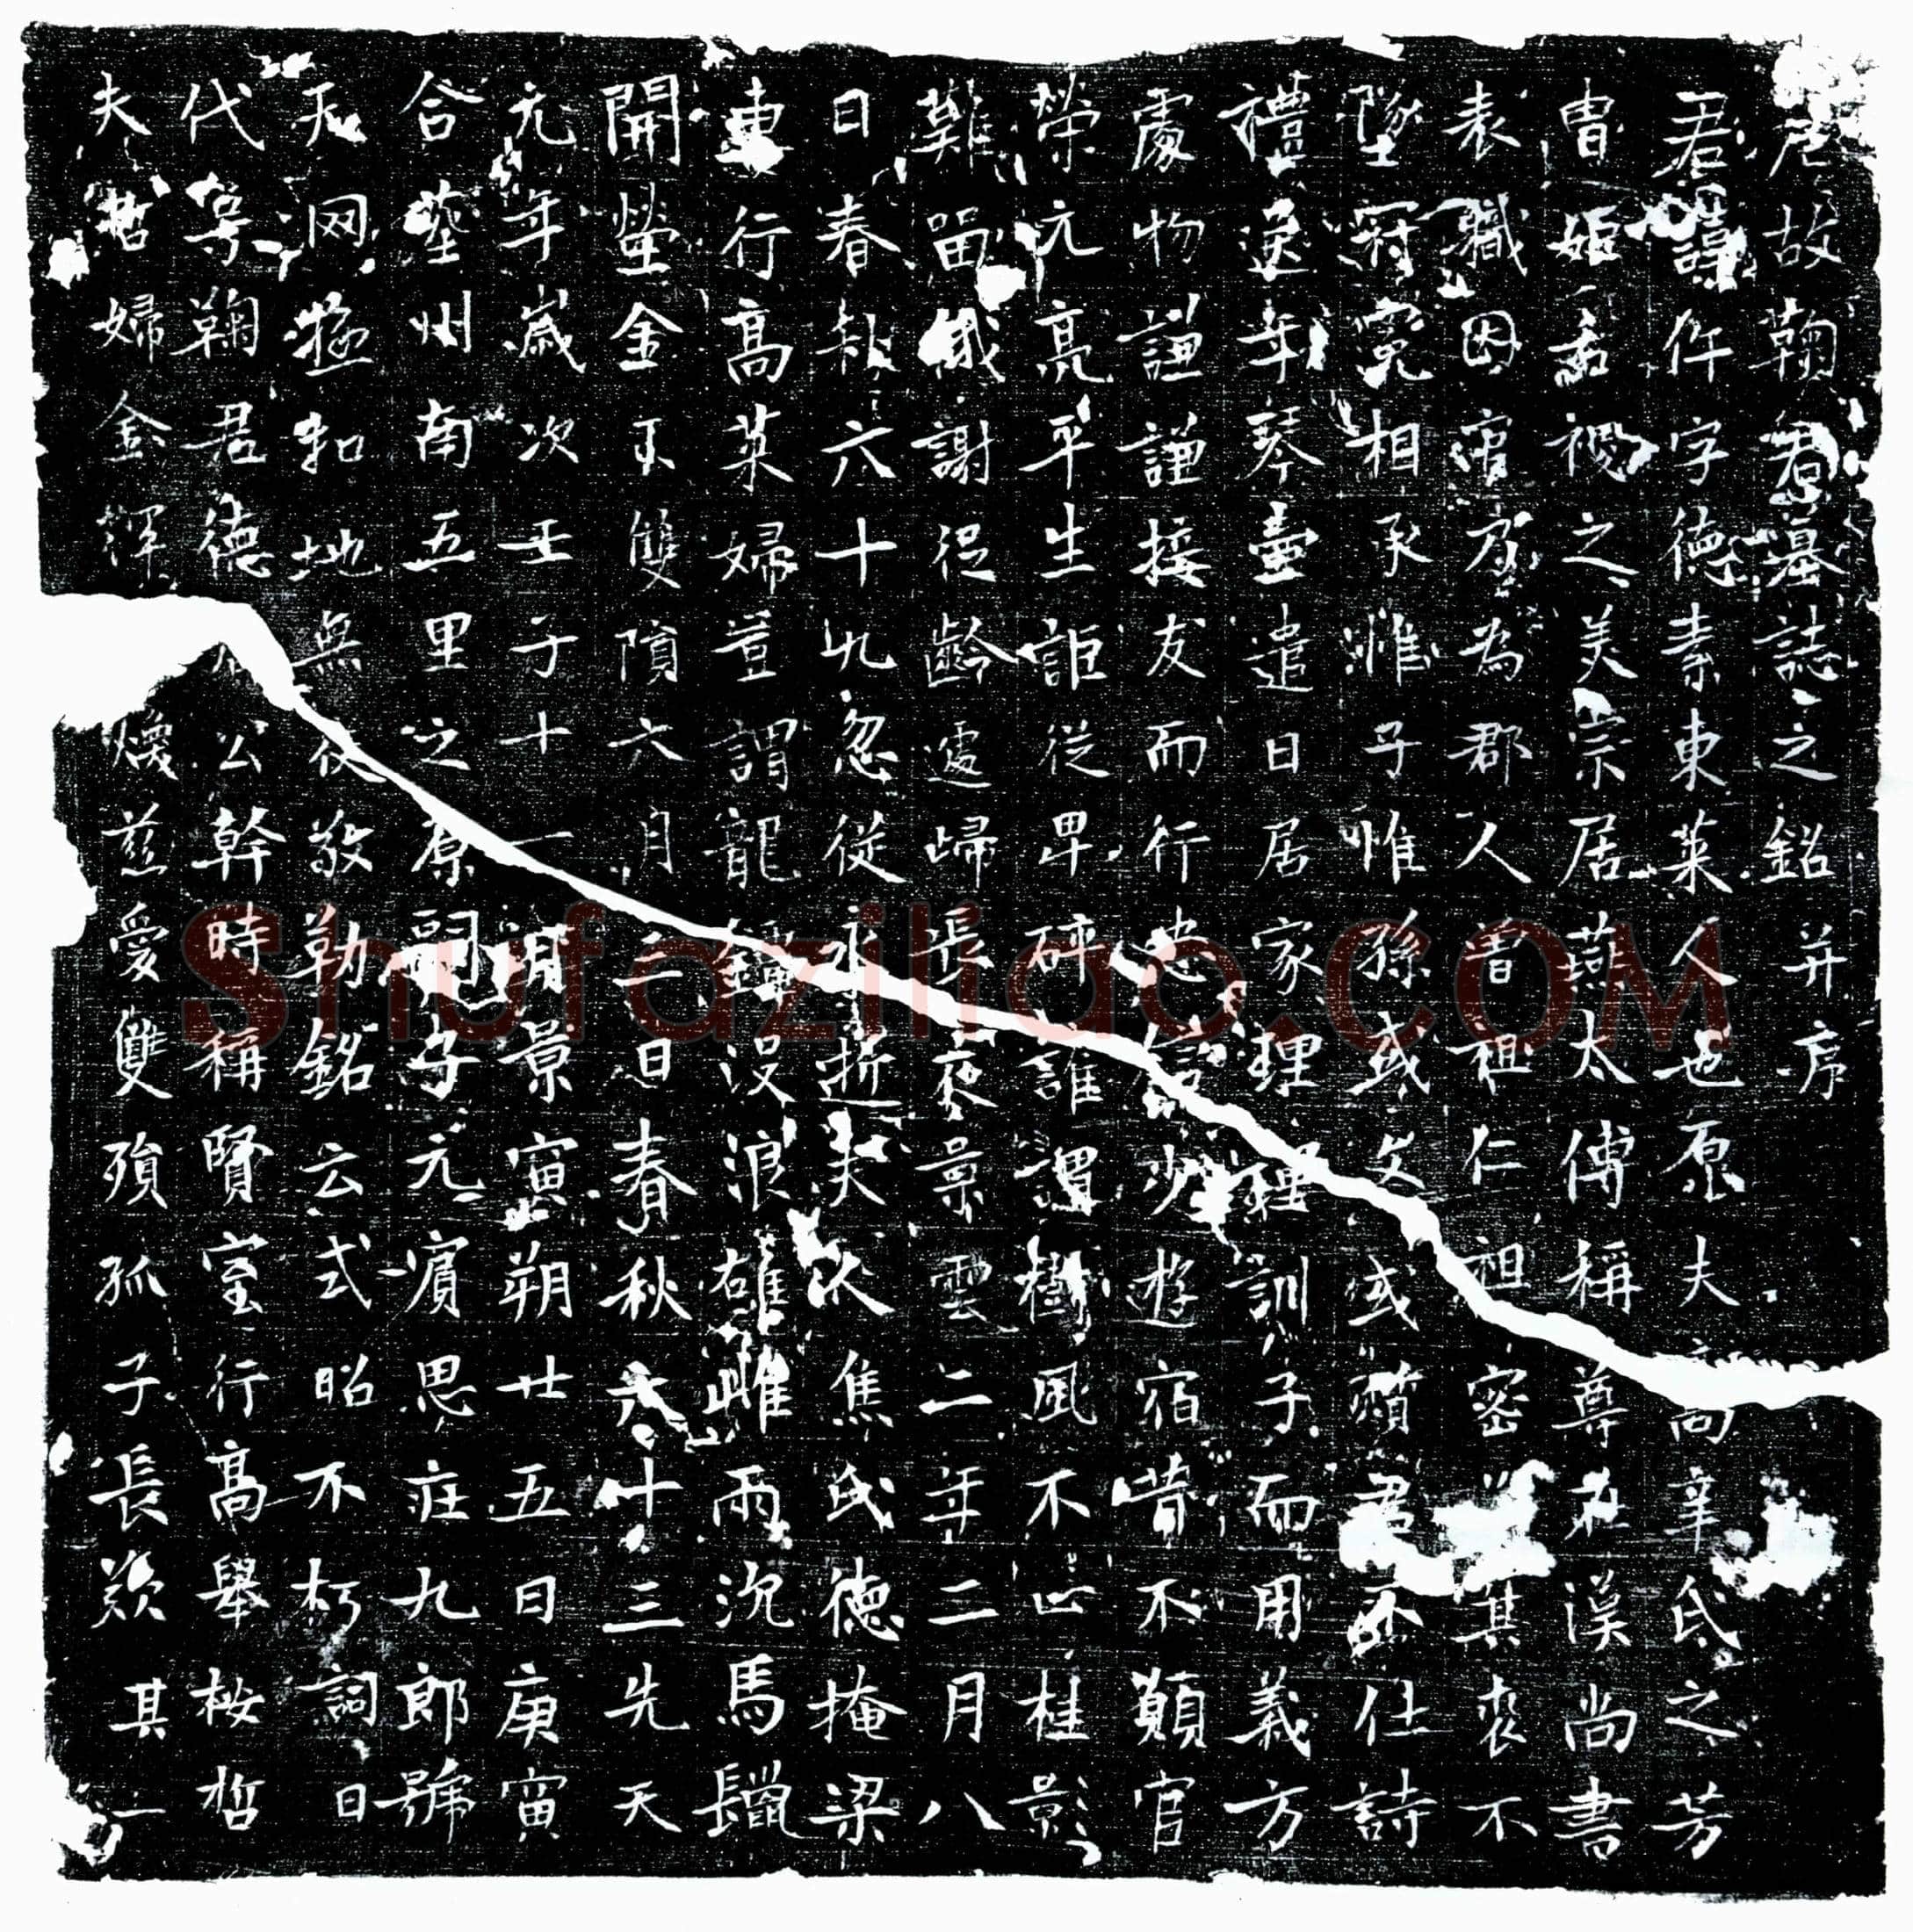 故鞠君墓誌之銘并序
君諱仵字德素東萊人也原夫高辛氏之芳
胄姬棄稷之美宗居燕太傅稱尊在漢尚書
表職因官定為郡人曾祖仁祖密其裘不
墜冠冕相承惟子惟孫或文或質君不仕詩
禮送年琴壺遣日居家理理訓子而用義方
處物謙謙接友而行忠信少遊宿昔不顛官
榮亢亮平生詎從卑碎誰謂樹風不止桂影
難留俄謝促齡遽歸長夜景雲二年二月八
日春秋六十九忽從永逝夫人焦氏德掩梁
妻行高萊婦豈謂龍鏡沒浪雄雌兩沉馬鬛
開塋金玉雙隕六月二日春秋六十三先天
元年歲次壬子十一月景寅朔廿五日庚寅
合葬州南五里之原嗣子元賓思庄九郎號
天网極扣地無從敬勒銘云式昭不朽詞曰
代号鞠君德公幹時稱賢室行高舉桉哲
夫哲婦金渾煥慈愛雙殞孤子長歎其一
Shufaziliao.COM